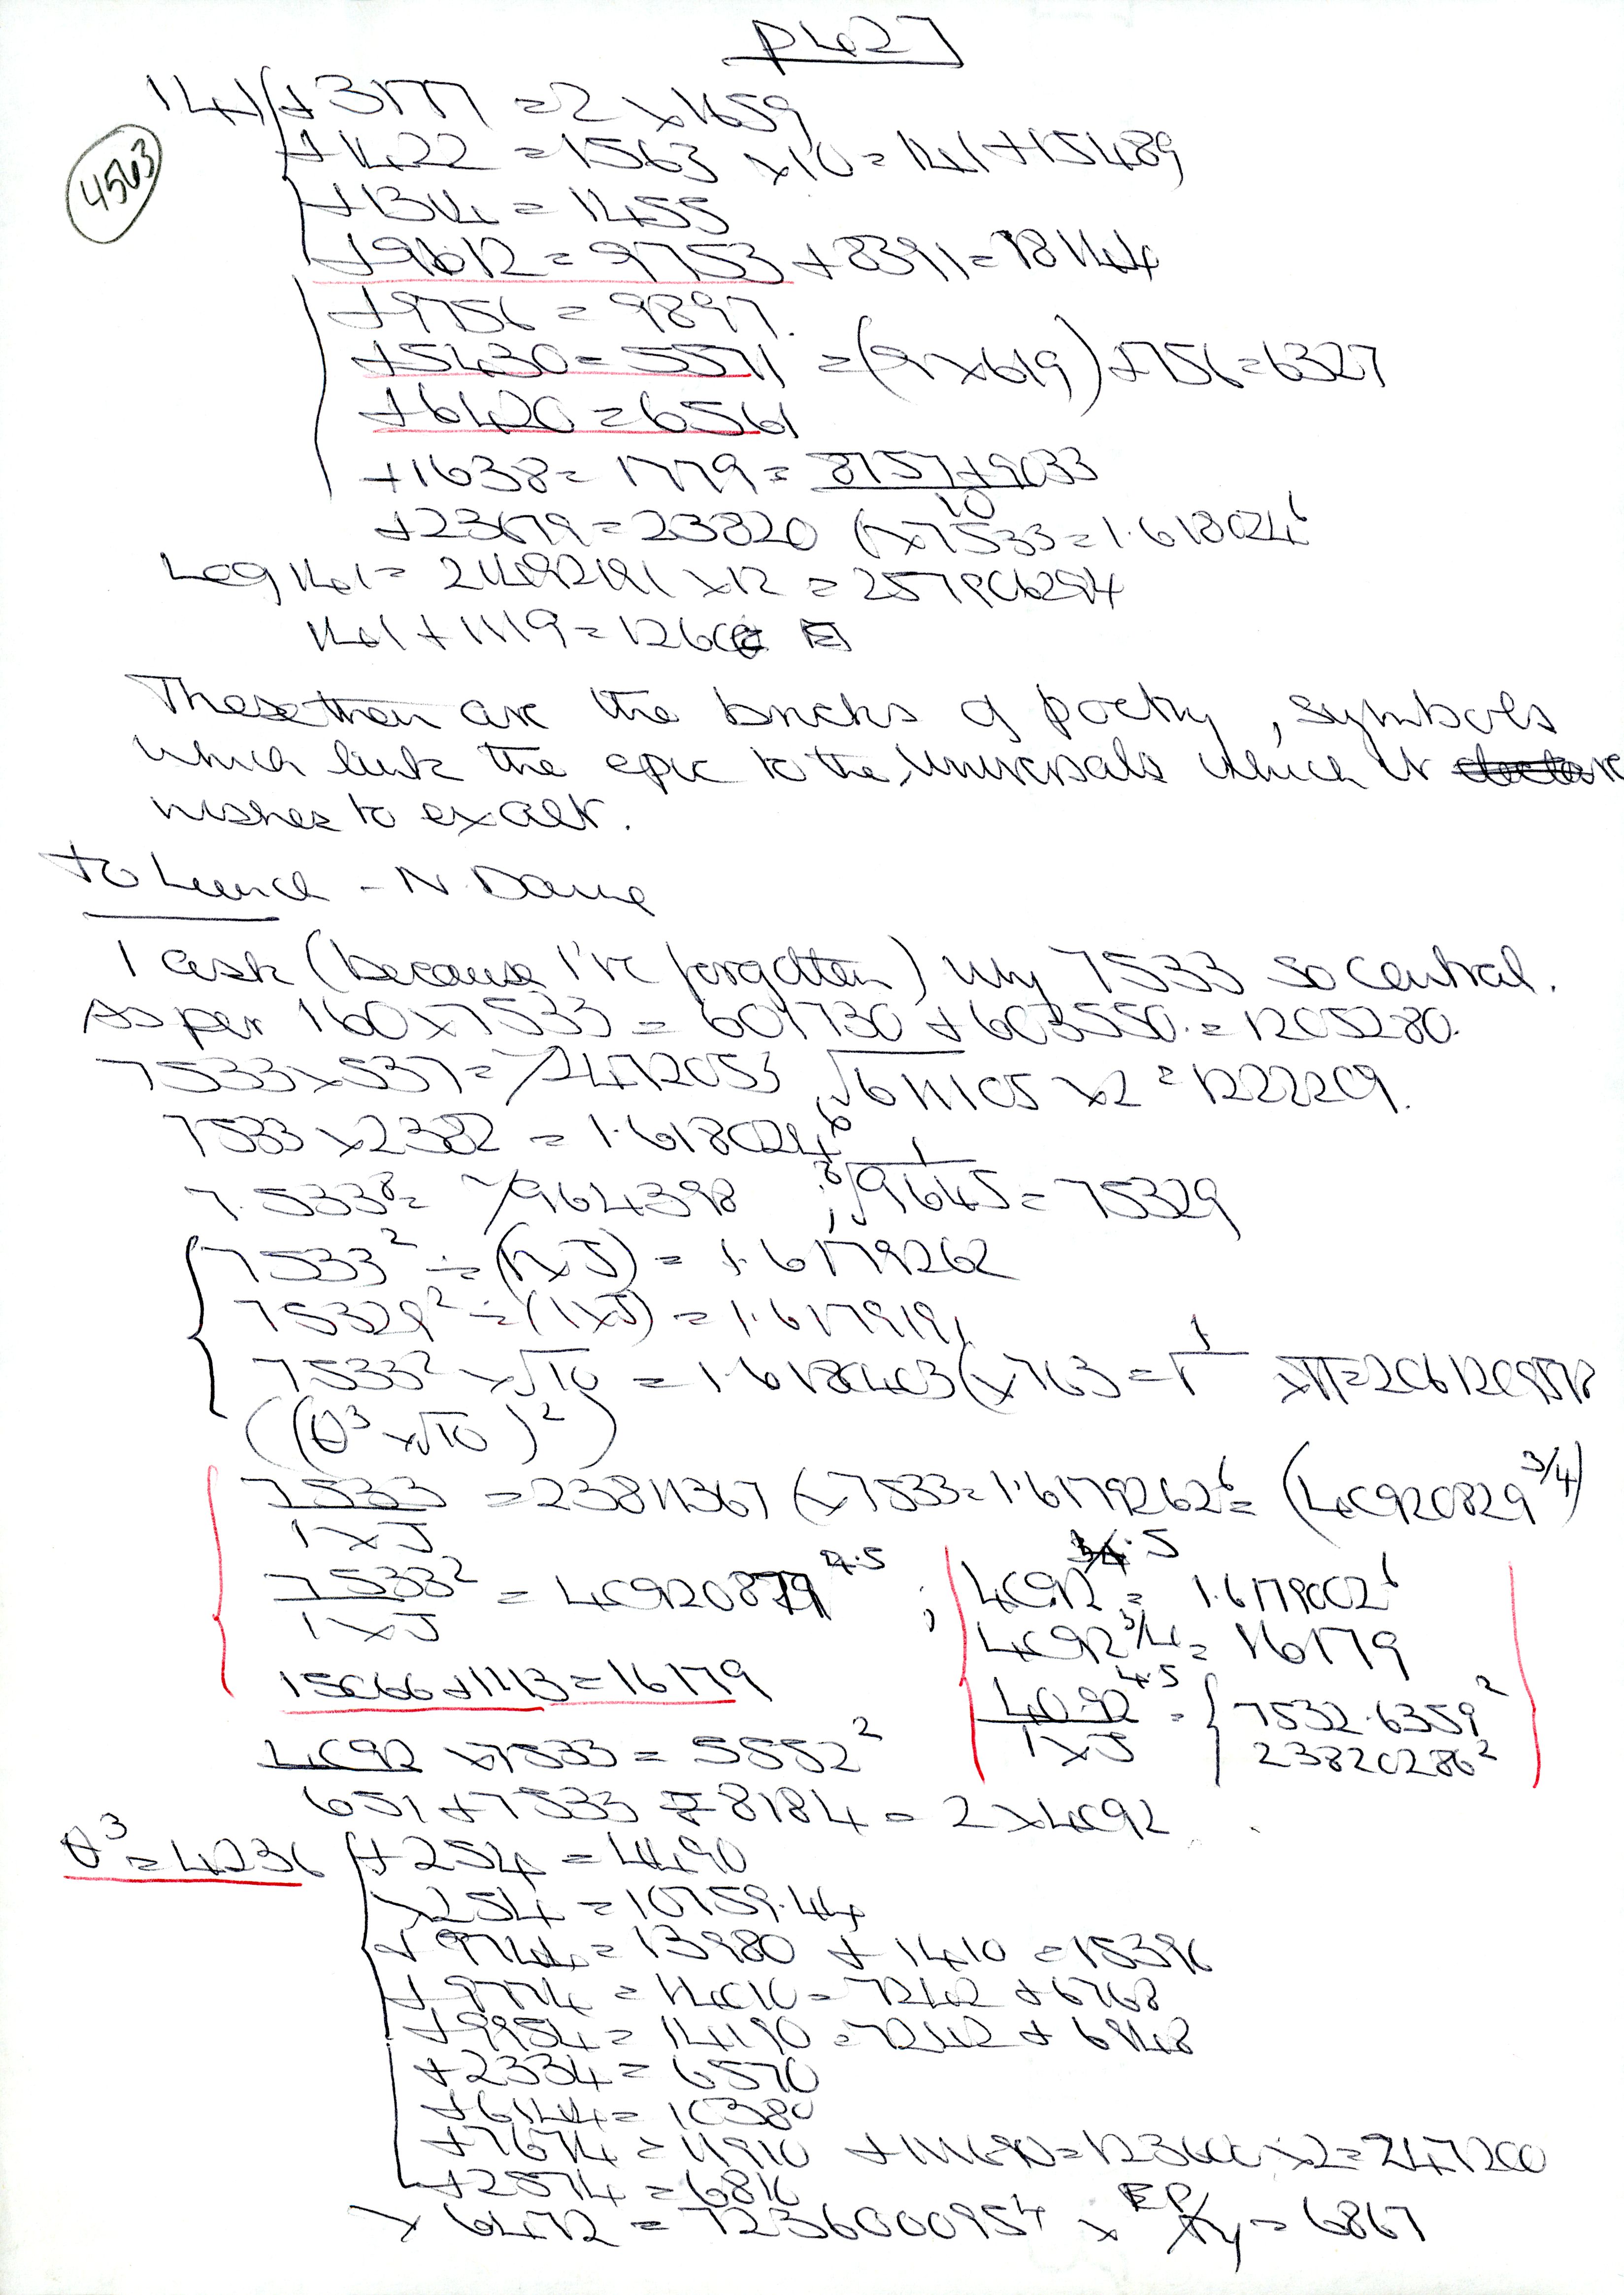 P427
4563
141 + 3177 = 2 × 1659
+ 1422 = 1563 × 10 = 141 + 15489
+ 1314 = 1455
+ 9612 = 9753 + 8391 = 18144
+ 9756 = 9897.
+ 5430 = 5571 = (9 × 619) + 756 = 6327
+ 6420 = 6561
+ 1638 = 1779 = 8757 + 9033 / 10
+ 23679 = 23820 (× 7533 = 1.618024⁶
Log 141 = 21492191 × 12 = 257906294
141 + 1119 = 1260
These then are the bricks of poetry, symbols
which link the epic to the universals which it
wishes to exalt.
To Lunch - N. Dame
I ask (because I've forgotten) why 7533 so central.
As per 160 × 7533 = 601730 + 603550. = 1205280.
7533 × 537 = 1/2472053 , √611105 × 2 = 1222209.
7533 × 2382 = 1.618024⁶
7.533⁸ = 1/964398 ; ⁸√1/9645 = 75329
7533² ÷ (1 × J) = 1.6179262
75329² ÷ (1 × J) = 1.6179191
7533² × √10 = 1.6180403 (× 763 = 1/ × π = 2061209578
((θ³ × √10)²)
7533 / 1 × J = 23811367 (× 7533 = 1.6179262⁶ = (40920829^3/4)
7533² / 1 × J = 40920879^4.5 ; 4092^.5 = 1.6179002⁶
4092^3/4 = 16179
15066 + 1113 = 16179
40.92^4.5 / 1 × J = { 7532.6359²
23820286²
4092 × 7533 = 5552²
651 + 7533 = 8184 = 2 × 4092
θ³ = 4236 + 254 = 4490
× 254 = 10759.44
+ 9744 = 13980 + 1410 = 15396
+ 9774 = 14010 = 7242 + 6768
+ 9954 = 14190 = 7242 + 6948
+ 2334 = 6570
+ 6144 = 10380
+ 7674 = 11910 + 111690 = 123600 × 2 = 247200
+ 2574 = 6810
× 6472 = 7236000954 × EP/Xy = 6867